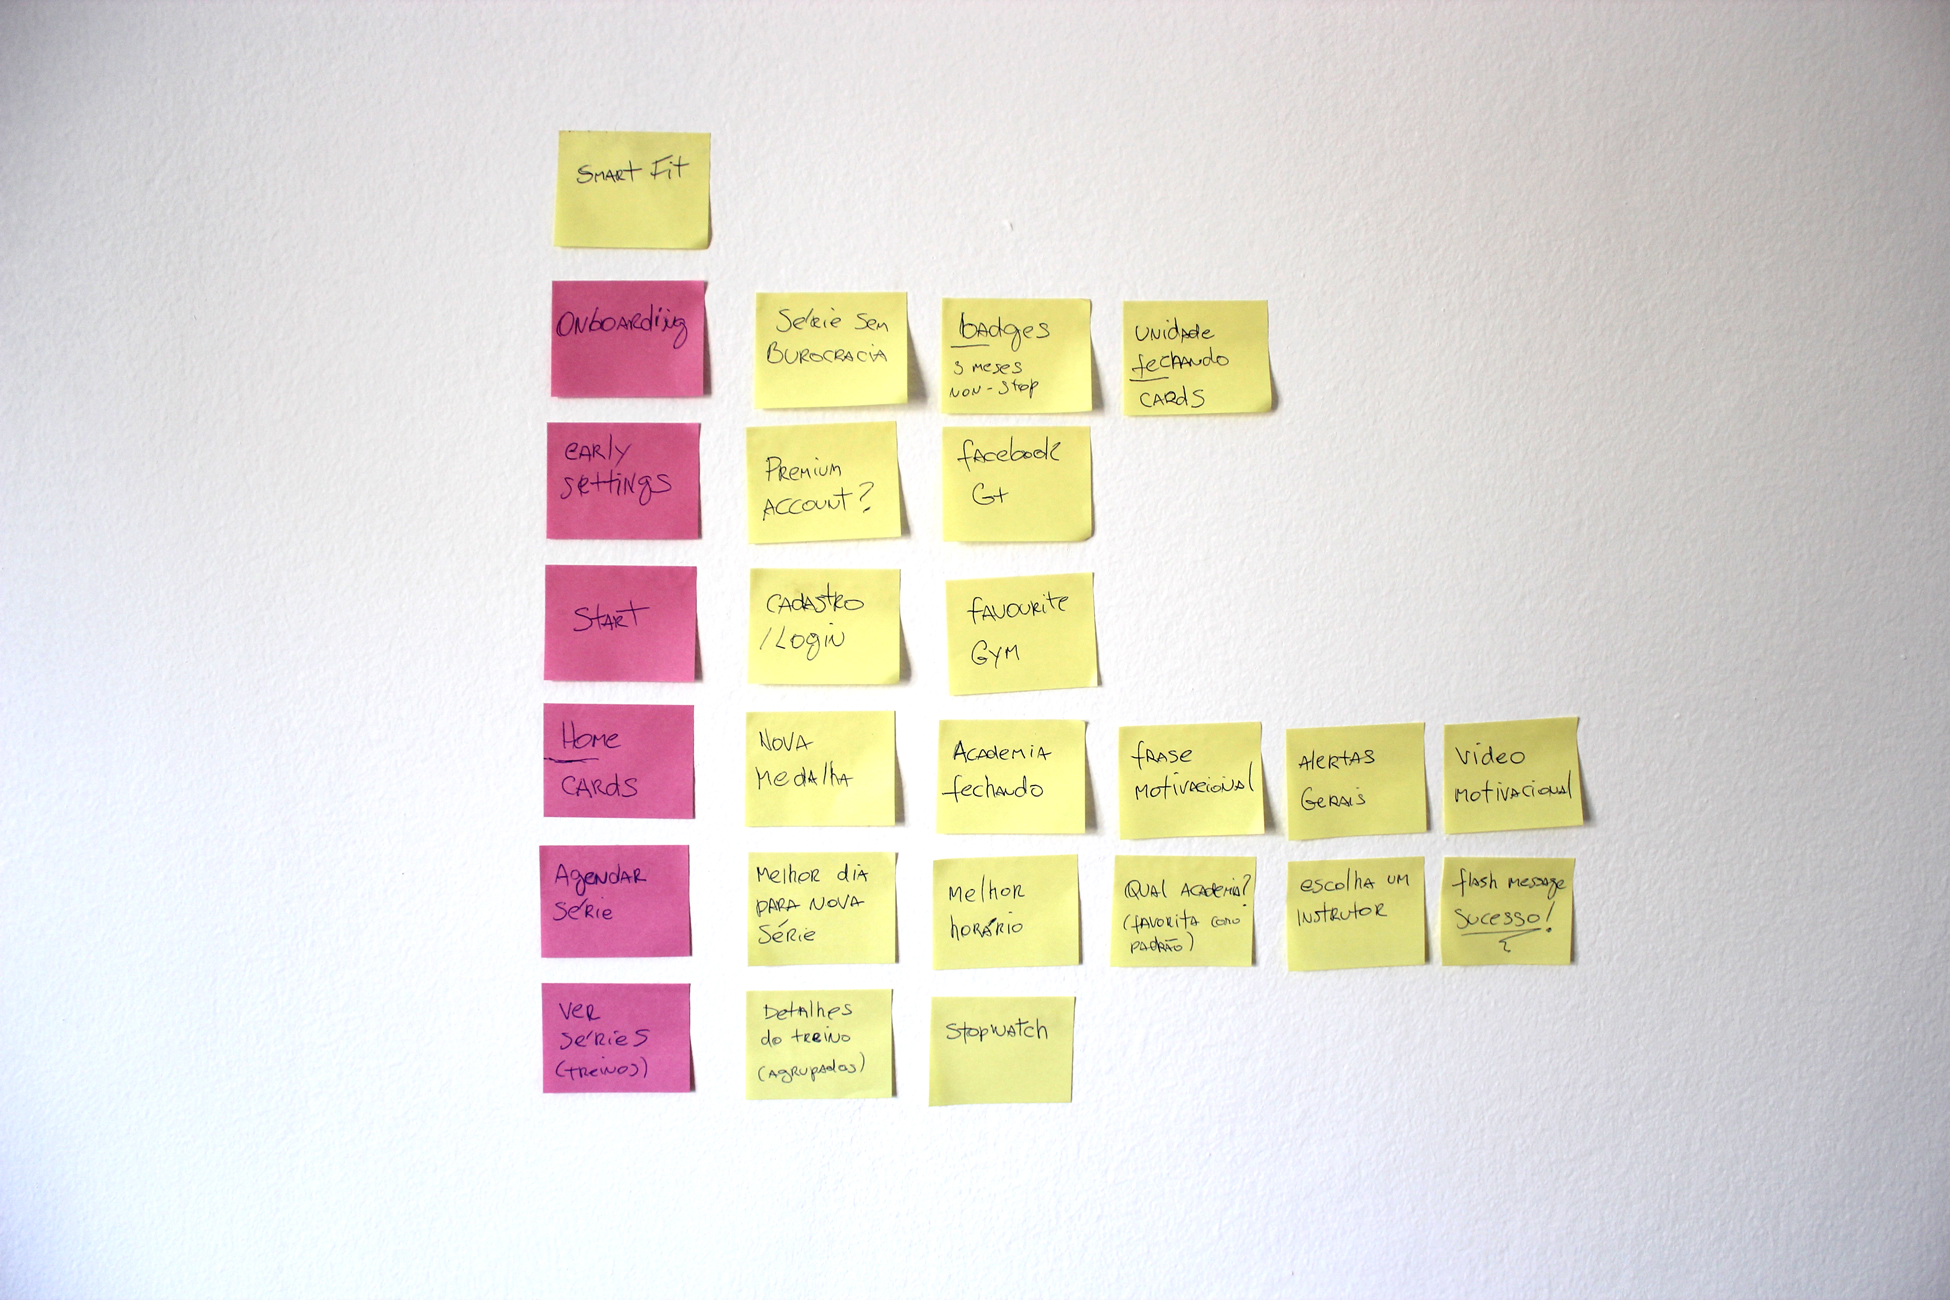 Smart Fit
Onboarding
Série sem
Burocracia
badges
3 meses
non-stop
Unidade
fechando
cards
early
settings
Premium
account?
facebook
G+
Start
Cadastro
/Login
favourite
Gym
Home
Cards
Nova
Medalha
Academia
fechando
frase
motivacional
Alertas
Gerais
Vídeo
motivacional
Agendar
Série
Melhor dia
para nova
Série
Melhor
horário
Qual academia?
(favorita como
padrão)
escolha um
instrutor
flash message
sucesso!
Ver
séries
(treinos)
Detalhes
do treino
(agrupados)
Stopwatch